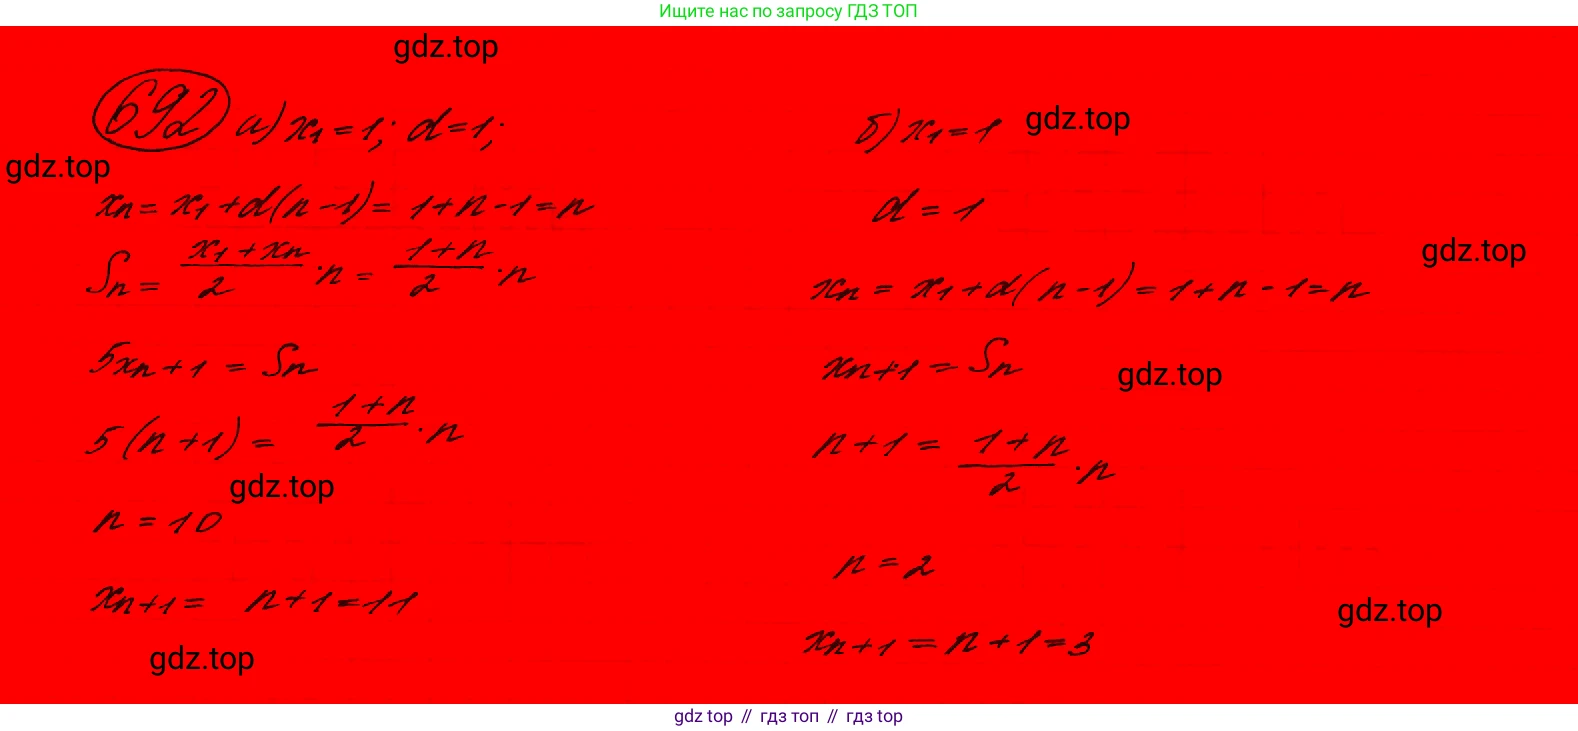 Ищите нас по запросу ГДЗ ТОП
gdz.top
692 а) x₁ = 1; d = 1;
gdz.top
xₙ = x₁ + d(n - 1) = 1 + n - 1 = n
Sₙ = (x₁ + xₙ)/2 · n = (1 + n)/2 · n
5xₙ₊₁ = Sₙ
5(n + 1) = (1 + n)/2 · n
gdz.top
n = 10
xₙ₊₁ = n + 1 = 11
gdz.top
б) x₁ = 1
gdz.top
d = 1
gdz.top
xₙ = x₁ + d(n - 1) = 1 + n - 1 = n
xₙ₊₁ = Sₙ
gdz.top
n + 1 = (1 + n)/2 · n
n = 2
gdz.top
xₙ₊₁ = n + 1 = 3
gdz top // гдз топ // гдз top